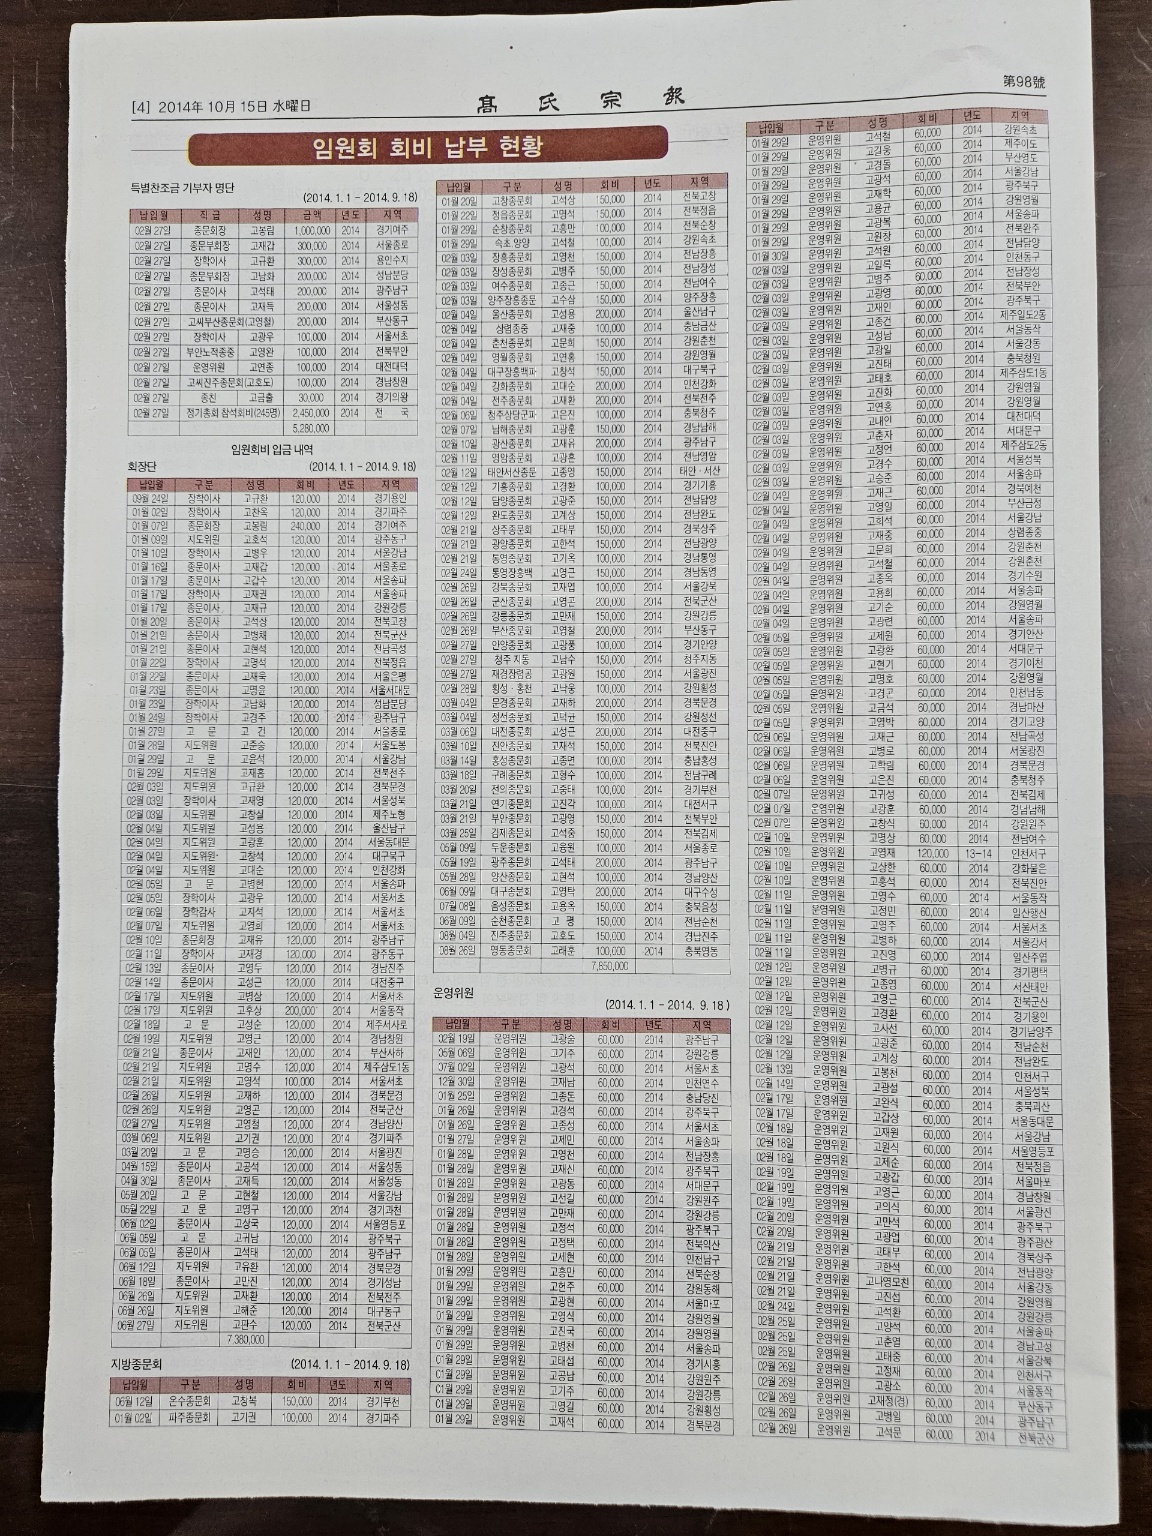 [4] 2014年 10月 15日 水曜日
高 氏 宗 報
第98號
임원회 회비 납부 현황
특별찬조금 기부자 명단
(2014. 1. 1 - 2014. 9. 18)
납입월 직급 성명 금액 년도 지역
02월 27일 종문회장 고봉림 1,000,000 2014 경기여주
02월 27일 종문부회장 고재갑 300,000 2014 서울종로
02월 27일 장학이사 고규환 300,000 2014 용인수지
02월 27일 종문부회장 고남화 200,000 2014 성남분당
02월 27일 종문이사 고석태 200,000 2014 광주남구
02월 27일 종문이사 고재득 200,000 2014 서울성동
02월 27일 고씨부산종문회(고영철) 200,000 2014 부산동구
02월 27일 장학이사 고광우 100,000 2014 서울서초
02월 27일 부안노적종중 고영완 100,000 2014 전북부안
02월 27일 운영위원 고연종 100,000 2014 대전대덕
02월 27일 고씨진주종문회(고호도) 100,000 2014 경남창원
02월 27일 종친 고금출 30,000 2014 경기의왕
02월 27일 정기총회 참석회비(245명) 2,450,000 2014 전 국
5,280,000
임원회비 입금 내역
회장단
(2014. 1. 1 - 2014. 9. 18)
납입월 구분 성명 회비 년도 지역
09월 24일 장학이사 고규환 120,000 2014 경기용인
01월 02일 장학이사 고찬옥 120,000 2014 경기파주
01월 07일 종문회장 고봉림 240,000 2014 경기여주
01월 09일 지도위원 고호석 120,000 2014 광주동구
01월 10일 장학이사 고병우 120,000 2014 서울강남
01월 16일 종문이사 고재갑 120,000 2014 서울종로
01월 17일 종문이사 고갑수 120,000 2014 서울송파
01월 17일 장학이사 고재권 120,000 2014 서울송파
01월 17일 종문이사 고재규 120,000 2014 강원강릉
01월 20일 종문이사 고석상 120,000 2014 전북고창
01월 21일 종문이사 고병채 120,000 2014 전북군산
01월 21일 종문이사 고현석 120,000 2014 전남곡성
01월 22일 장학이사 고영석 120,000 2014 전북정읍
01월 22일 종문이사 고재욱 120,000 2014 서울은평
01월 23일 종문이사 고명윤 120,000 2014 서울서대문
01월 23일 장학이사 고남화 120,000 2014 성남분당
01월 24일 장학이사 고경주 120,000 2014 광주남구
01월 27일 고 문 고 건 120,000 2014 서울종로
01월 28일 지도위원 고준승 120,000 2014 서울도봉
01월 29일 고 문 고윤석 120,000 2014 서울강남
01월 29일 지도위원 고재흠 120,000 2014 전북전주
02월 03일 지도위원 고규환 120,000 2014 경북문경
02월 03일 장학이사 고재영 120,000 2014 서울성북
02월 03일 지도위원 고창실 120,000 2014 제주노형
02월 04일 지도위원 고성용 120,000 2014 울산남구
02월 04일 지도위원 고광훈 120,000 2014 서울동대문
02월 04일 지도위원 고창석 120,000 2014 대구북구
02월 04일 지도위원 고대순 120,000 2014 인천강화
02월 05일 고 문 고병헌 120,000 2014 서울송파
02월 05일 장학이사 고광우 120,000 2014 서울서초
02월 06일 장학감사 고지석 120,000 2014 서울서초
02월 07일 지도위원 고영희 120,000 2014 서울서초
02월 10일 종문회장 고재유 120,000 2014 광주남구
02월 11일 장학이사 고재경 120,000 2014 광주동구
02월 13일 종문이사 고영두 120,000 2014 경남진주
02월 14일 종문이사 고성근 120,000 2014 대전중구
02월 17일 지도위원 고병삼 120,000 2014 서울서초
02월 17일 지도위원 고후상 200,000 2014 서울동작
02월 18일 고 문 고성순 120,000 2014 제주서사로
02월 19일 지도위원 고영근 120,000 2014 경남창원
02월 21일 종문이사 고재인 120,000 2014 부산사하
02월 21일 지도위원 고명수 120,000 2014 제주삼도1동
02월 21일 지도위원 고영석 100,000 2014 서울서초
02월 26일 지도위원 고재하 120,000 2014 경북문경
02월 26일 지도위원 고영곤 120,000 2014 전북군산
02월 27일 지도위원 고영철 120,000 2014 경남양산
03월 06일 지도위원 고기권 120,000 2014 경기파주
03월 20일 고 문 고명승 120,000 2014 서울광진
04월 15일 종문이사 고공석 120,000 2014 서울성동
04월 30일 종문이사 고재득 120,000 2014 서울성동
05월 20일 고 문 고현철 120,000 2014 서울강남
05월 22일 고 문 고영구 120,000 2014 경기과천
06월 02일 종문이사 고상국 120,000 2014 서울영등포
06월 05일 고 문 고귀남 120,000 2014 광주북구
06월 05일 종문이사 고석태 120,000 2014 광주남구
06월 12일 지도위원 고유환 120,000 2014 경북문경
06월 18일 종문이사 고만진 120,000 2014 경기성남
06월 26일 지도위원 고재환 120,000 2014 전북전주
06월 26일 지도위원 고해준 120,000 2014 대구동구
06월 27일 지도위원 고판수 120,000 2014 전북군산
7,380,000
지방종문회
(2014. 1. 1 - 2014. 9. 18)
납입월 구분 성명 회비 년도 지역
06월 12일 온수종문회 고창복 150,000 2014 경기부천
01월 02일 파주종문회 고기권 100,000 2014 경기파주
납입월 구분 성명 회비 년도 지역
01월 20일 고창종문회 고석상 150,000 2014 전북고창
01월 22일 정읍종문회 고영석 150,000 2014 전북정읍
01월 29일 순창종문회 고흥만 100,000 2014 전북순창
01월 29일 속초 양양 고석철 100,000 2014 강원속초
02월 03일 장흥종문회 고영천 150,000 2014 전남장흥
02월 03일 장성종문회 고병주 150,000 2014 전남장성
02월 03일 여수종문회 고충근 150,000 2014 전남여수
02월 03일 양주장흥종문 고수삼 150,000 2014 양주장흥
02월 04일 울산종문회 고성용 200,000 2014 울산남구
02월 04일 상렴종중 고재중 100,000 2014 충남금산
02월 04일 춘천종문회 고문희 150,000 2014 강원춘천
02월 04일 영월종문회 고연홍 150,000 2014 강원영월
02월 04일 대구장흥백파 고창석 150,000 2014 대구북구
02월 04일 강화종문회 고대순 200,000 2014 인천강화
02월 04일 전주종문회 고재환 200,000 2014 전북전주
02월 06일 청주상당군파 고은진 100,000 2014 충북청주
02월 07일 남해종문회 고광훈 150,000 2014 경남남해
02월 10일 광산종문회 고재유 200,000 2014 광주남구
02월 11일 영암종문회 고광훈 100,000 2014 전남영암
02월 12일 태안서산종문 고종영 150,000 2014 태안·서산
02월 12일 기흥종문회 고경환 100,000 2014 경기기흥
02월 12일 담양종문회 고광주 150,000 2014 전남담양
02월 12일 완도종문회 고계상 150,000 2014 전남완도
02월 21일 상주종문회 고태부 150,000 2014 경북상주
02월 21일 광양종문회 고한석 150,000 2014 전남광양
02월 21일 통영종문회 고기옥 100,000 2014 경남통영
02월 24일 통영장흥백 고영근 150,000 2014 경남통영
02월 26일 강북종문회 고재업 100,000 2014 서울강북
02월 26일 군산종문회 고영곤 200,000 2014 전북군산
02월 26일 강릉종문회 고만재 150,000 2014 강원강릉
02월 26일 부산종문회 고영철 200,000 2014 부산동구
02월 27일 안양종문회 고광룡 100,000 2014 경기안양
02월 27일 청주 지동 고남수 150,000 2014 청주지동
02월 27일 재경장렴공 고광원 150,000 2014 서울광진
02월 28일 횡성·홍천 고낙웅 100,000 2014 강원횡성
03월 04일 문경종문회 고재하 200,000 2014 경북문경
03월 04일 정선종문회 고덕균 150,000 2014 강원정선
03월 06일 대전종문회 고성근 200,000 2014 대전중구
03월 10일 진안종문회 고재석 150,000 2014 전북진안
03월 14일 홍성종문회 고종면 100,000 2014 충남홍성
03월 18일 구례종문회 고형수 100,000 2014 전남구례
03월 20일 전의종문회 고충태 100,000 2014 경기부천
03월 21일 연기종문회 고진각 100,000 2014 대전서구
03월 21일 부안종문회 고광영 150,000 2014 전북부안
03월 25일 김제종문회 고석중 150,000 2014 전북김제
05월 09일 두문종문회 고융원 100,000 2014 서울종로
05월 19일 광주종문회 고석태 200,000 2014 광주남구
05월 28일 양산종문회 고현석 100,000 2014 경남양산
06월 09일 대구종문회 고영탁 200,000 2014 대구수성
07월 08일 음성종문회 고용욱 150,000 2014 충북음성
06월 09일 순천종문회 고 평 150,000 2014 전남순천
08월 04일 진주종문회 고호도 150,000 2014 경남진주
08월 26일 영동종문회 고래훈 100,000 2014 충북영동
7,850,000
운영위원
(2014. 1. 1 - 2014. 9. 18)
납입월 구분 성명 회비 년도 지역
02월 19일 운영위원 고광술 60,000 2014 광주남구
05월 06일 운영위원 고기주 60,000 2014 강원강릉
07월 02일 운영위원 고광석 60,000 2014 서울서초
12월 30일 운영위원 고재남 60,000 2014 인천연수
01월 25일 운영위원 고종돈 60,000 2014 충남당진
01월 24일 운영위원 고경석 60,000 2014 광주북구
01월 26일 운영위원 고종성 60,000 2014 서울서초
01월 27일 운영위원 고제민 60,000 2014 서울송파
01월 28일 운영위원 고영천 60,000 2014 전남장흥
01월 28일 운영위원 고재신 60,000 2014 광주북구
01월 28일 운영위원 고광동 60,000 2014 서대문구
01월 28일 운영위원 고선길 60,000 2014 강원원주
01월 28일 운영위원 고만재 60,000 2014 강원강릉
01월 28일 운영위원 고정석 60,000 2014 광주북구
01월 28일 운영위원 고정택 60,000 2014 전북익산
01월 28일 운영위원 고세현 60,000 2014 인천남구
01월 29일 운영위원 고흥만 60,000 2014 전북순창
01월 29일 운영위원 고헌주 60,000 2014 강원동해
01월 29일 운영위원 고광현 60,000 2014 서울마포
01월 29일 운영위원 고영식 60,000 2014 강원영월
01월 29일 운영위원 고진국 60,000 2014 강원영월
01월 29일 운영위원 고병천 60,000 2014 서울송파
01월 29일 운영위원 고태섭 60,000 2014 경기시흥
01월 29일 운영위원 고공남 60,000 2014 강원원주
01월 29일 운영위원 고기주 60,000 2014 강원강릉
01월 29일 운영위원 고영길 60,000 2014 강원횡성
01월 29일 운영위원 고재석 60,000 2014 경북문경
납입월 구분 성명 회비 년도 지역
01월 29일 운영위원 고석철 60,000 2014 강원속초
01월 29일 운영위원 고길홍 60,000 2014 제주이도
01월 29일 운영위원 고경돌 60,000 2014 부산영도
01월 29일 운영위원 고광석 60,000 2014 서울강남
01월 29일 운영위원 고재학 60,000 2014 광주북구
01월 29일 운영위원 고용균 60,000 2014 강원영월
01월 29일 운영위원 고광복 60,000 2014 서울송파
01월 29일 운영위원 고원장 60,000 2014 전북완주
01월 30일 운영위원 고석원 60,000 2014 전남담양
02월 03일 운영위원 고일록 60,000 2014 인천동구
02월 03일 운영위원 고병주 60,000 2014 전남장성
02월 03일 운영위원 고광영 60,000 2014 전북부안
02월 03일 운영위원 고재인 60,000 2014 광주북구
02월 03일 운영위원 고종건 60,000 2014 제주일도2동
02월 03일 운영위원 고성남 60,000 2014 서울동작
02월 03일 운영위원 고광일 60,000 2014 서울강동
02월 03일 운영위원 고진태 60,000 2014 충북청원
02월 03일 운영위원 고태호 60,000 2014 제주삼도1동
02월 03일 운영위원 고진화 60,000 2014 강원영월
02월 03일 운영위원 고연홍 60,000 2014 강원영월
02월 03일 운영위원 고내인 60,000 2014 대전대덕
02월 03일 운영위원 고춘자 60,000 2014 서대문구
02월 03일 운영위원 고정언 60,000 2014 제주삼도2동
02월 03일 운영위원 고경수 60,000 2014 서울성북
02월 03일 운영위원 고승준 60,000 2014 서울송파
02월 04일 운영위원 고재근 60,000 2014 경북예천
02월 04일 운영위원 고영일 60,000 2014 부산금정
02월 04일 운영위원 고희석 60,000 2014 서울강남
02월 04일 운영위원 고재중 60,000 2014 상렴종중
02월 04일 운영위원 고문희 60,000 2014 강원춘천
02월 04일 운영위원 고석철 60,000 2014 강원춘천
02월 04일 운영위원 고종옥 60,000 2014 경기수원
02월 04일 운영위원 고용희 60,000 2014 서울송파
02월 04일 운영위원 고기순 60,000 2014 강원영월
02월 04일 운영위원 고광련 60,000 2014 서울송파
02월 05일 운영위원 고제원 60,000 2014 경기안산
02월 05일 운영위원 고광환 60,000 2014 서대문구
02월 05일 운영위원 고현기 60,000 2014 경기이천
02월 05일 운영위원 고명호 60,000 2014 강원영월
02월 05일 운영위원 고경곤 60,000 2014 인천남동
02월 05일 운영위원 고금석 60,000 2014 경남마산
02월 05일 운영위원 고영박 60,000 2014 경기고양
02월 06일 운영위원 고재근 60,000 2014 전남곡성
02월 06일 운영위원 고병로 60,000 2014 서울광진
02월 06일 운영위원 고학림 60,000 2014 경북문경
02월 06일 운영위원 고은진 60,000 2014 충북청주
02월 07일 운영위원 고귀성 60,000 2014 전북김제
02월 07일 운영위원 고광훈 60,000 2014 경남남해
02월 07일 운영위원 고창식 60,000 2014 강원원주
02월 10일 운영위원 고명상 60,000 2014 전남여수
02월 10일 운영위원 고영재 120,000 13-14 인천서구
02월 10일 운영위원 고상한 60,000 2014 강화불은
02월 10일 운영위원 고홍석 60,000 2014 전북진안
02월 11일 운영위원 고영수 60,000 2014 서울동작
02월 11일 운영위원 고정민 60,000 2014 일산행신
02월 11일 운영위원 고영주 60,000 2014 서울서초
02월 11일 운영위원 고병하 60,000 2014 서울강서
02월 11일 운영위원 고진영 60,000 2014 일산주엽
02월 12일 운영위원 고병규 60,000 2014 경기평택
02월 12일 운영위원 고종영 60,000 2014 서산태안
02월 12일 운영위원 고영근 60,000 2014 전북군산
02월 12일 운영위원 고경환 60,000 2014 경기용인
02월 12일 운영위원 고사선 60,000 2014 경기남양주
02월 12일 운영위원 고광준 60,000 2014 전남순천
02월 12일 운영위원 고계상 60,000 2014 전남완도
02월 13일 운영위원 고봉천 60,000 2014 인천서구
02월 14일 운영위원 고광설 60,000 2014 서울성북
02월 17일 운영위원 고완식 60,000 2014 충북괴산
02월 17일 운영위원 고갑삼 60,000 2014 서울동대문
02월 18일 운영위원 고재원 60,000 2014 서울강남
02월 18일 운영위원 고원식 60,000 2014 서울영등포
02월 18일 운영위원 고제순 60,000 2014 전북정읍
02월 19일 운영위원 고광갑 60,000 2014 서울마포
02월 19일 운영위원 고영근 60,000 2014 경남창원
02월 19일 운영위원 고의식 60,000 2014 서울광진
02월 20일 운영위원 고만석 60,000 2014 광주북구
02월 20일 운영위원 고광업 60,000 2014 광주광산
02월 21일 운영위원 고태부 60,000 2014 경북상주
02월 21일 운영위원 고한석 60,000 2014 전남광양
02월 21일 운영위원 고나영모친 60,000 2014 서울강동
02월 24일 운영위원 고진섭 60,000 2014 강원영월
02월 25일 운영위원 고석환 60,000 2014 강원강릉
02월 25일 운영위원 고양석 60,000 2014 서울송파
02월 25일 운영위원 고춘열 60,000 2014 경남고성
02월 26일 운영위원 고태중 60,000 2014 서울강북
02월 26일 운영위원 고정재 60,000 2014 인천서구
02월 26일 운영위원 고광소 60,000 2014 서울동작
02월 26일 운영위원 고재정(경) 60,000 2014 부산동구
02월 26일 운영위원 고병일 60,000 2014 광주남구
02월 26일 운영위원 고석문 60,000 2014 전북군산